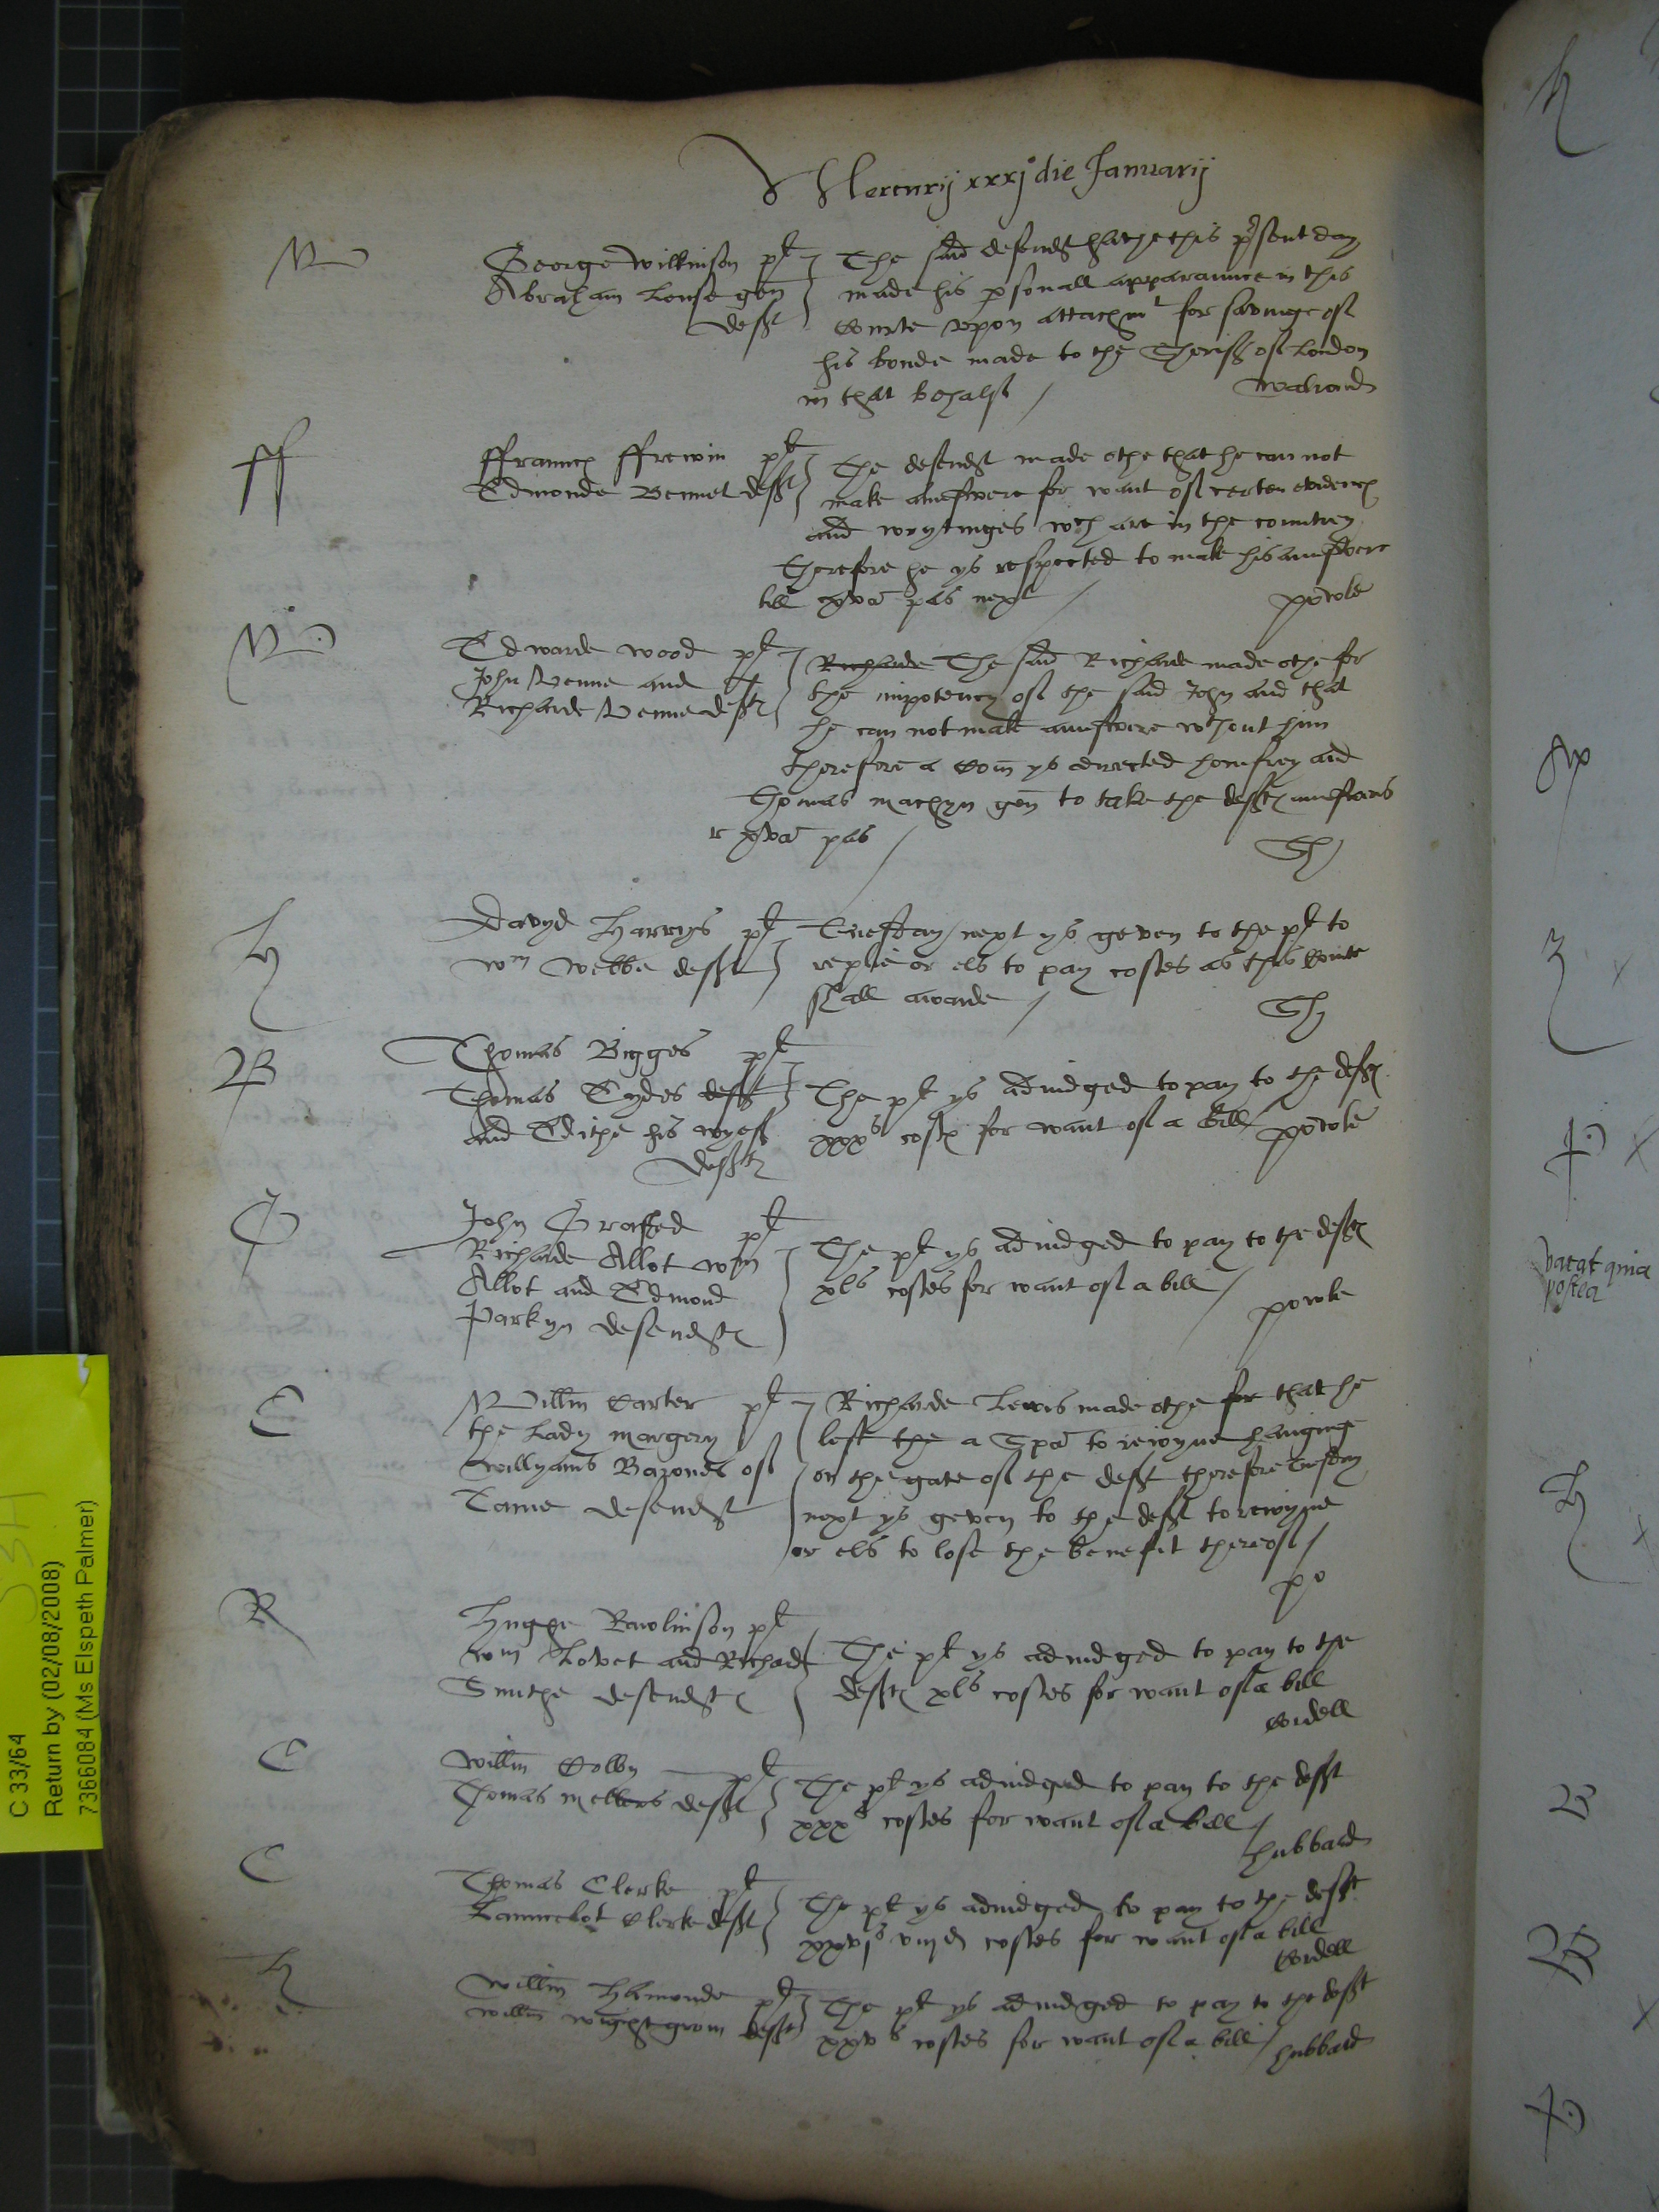 Mercurij xxxj° die Januarij
W
George Wilkinson pl
Abraham Lonse gen
deft
The said defendt hathe this p'sent day
made his p'sonall apparaunce in this
Courte vpon attachmt for savinge of
his bonde made to the Sheriff of London
in that behalf / Walrond
ff
ffraunc ffrewin pl
Edmonde Bennet deft
The defendt made othe that he can not
make aunswere for want of certen evidenc
and wrytinges wch are in the countrey
Therefore he ys respected to make his aunswere
till pas next / powle
W
Edwarde Wood pl
John Venne and
Richarde Venne deft
Richarde The said Richarde made othe for
the impotency of the said John and that
he can not make aunswere wthout him
therefore a Com ys directed homfrey and
Thomas machyn gen to take the deft aunsweres
pas /
H
Davyd Harrys pl
Wm Webbe deft
Tuesday next ys geven to the pl to
replie or els to pay costes as this Courte
shall awarde /
B
Thomas Bigges pl
Thomas Eydes deft
and Edithe his wyeff
deft
The pl ys adiudged to pay to the deft
xxxs cost for want of a bill / powle
John pl
Richarde Allot Wm
Allot and Edmond
Parkyn defendt
The pl ys adiudged to pay to the deft
xls costes for want of a bill / powle
C
Willm Carter pl
the Lady margery
Willyams Barones of
Tame defendt
Richarde Lewis made othe for that he
left the a Spa to reioyne hanginge
on the gate of the deft therefore Tuesday
next ys geven to the deft to reioyne
or els to lose the benefit thereof /
po
R
Hughe Rawlinson pl
Wm Lovet and Richard
Smithe defendt
The pl ys adiudged to pay to the
deft xls costes for want of a bill
Cordell
C
Willm Colby pl
Thomas mellers deft
The pl ys adiudged to pay to the deft
xxxs costes for want of a bill /
hubbard
C
Thomas Clerke pl
Launcelot Clerke deft
The pl ys adiudged to pay to the deft
xxvjs viijd costes for want of a bill
Cordell
H
Willm Hamonde pl
Willm Wightgrom deft
The pl ys adiudged to pay to the deft
xxvs costes for want of a bill / hubbard
vacat quia
postea
C 33/64
Return by (02/08/2008)
7366084 (Ms Elspeth Palmer)